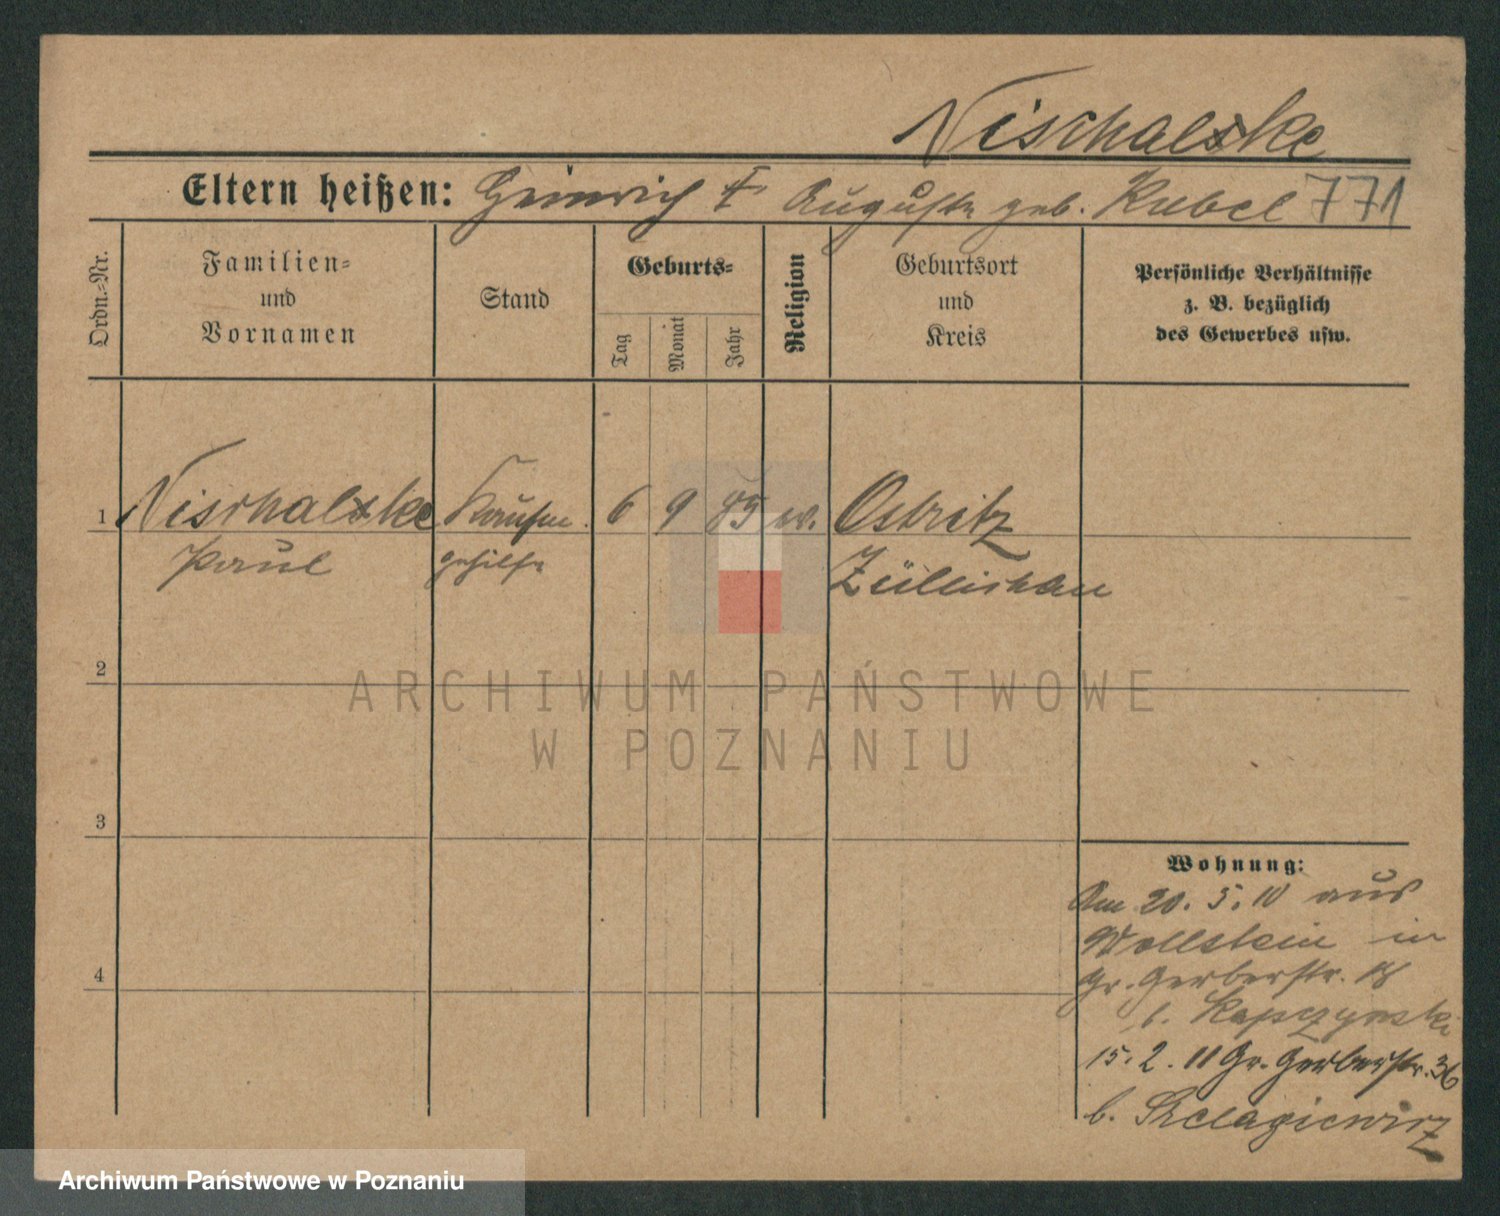 Nischalske
Eltern heißen: Heinrich † Auguste geb. Kubel 771
Ordn.-Nr.
Familien-
und
Vornamen
Stand
Geburts-
Tag
Monat
Jahr
Religion
Geburtsort
und
Kreis
Persönliche Verhältnisse
z. B. bezüglich
des Gewerbes usw.
1 Nischalske Kaufm. 6 9 85 ev. Ostritz
Paul gehilfe Züllichau
2
ARCHIWUM PAŃSTWOWE
W POZNANIU
3
Wohnung:
Am 20. 5. 10 aus
Wollstein in
4
Gr. Gerberstr. 18
b. Kapczynski
15. 2. 11 Gr. Gerberstr. 36
b. Szelagiewicz
Archiwum Państwowe w Poznaniu